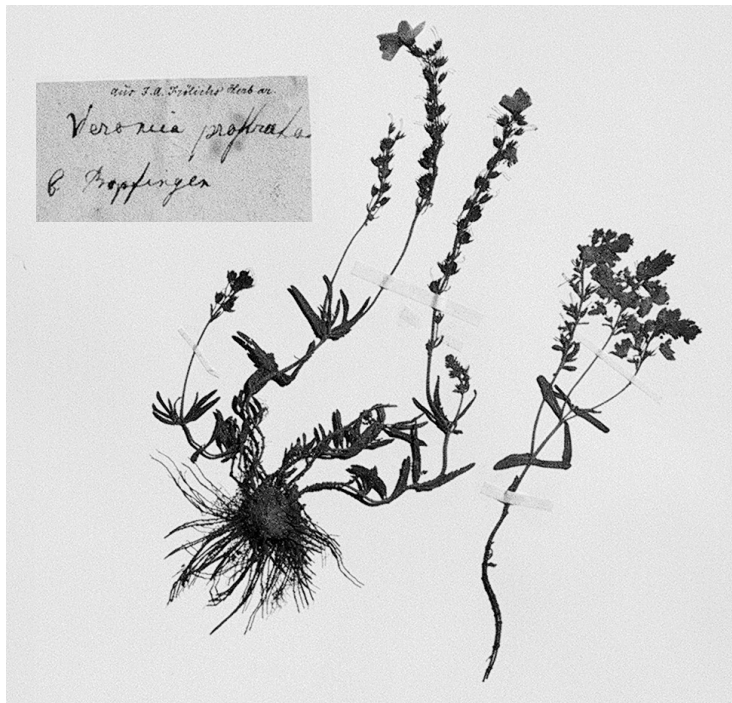 aus J. A. Frölichs Herbar.
Veronica prostrata
b Bopfingen